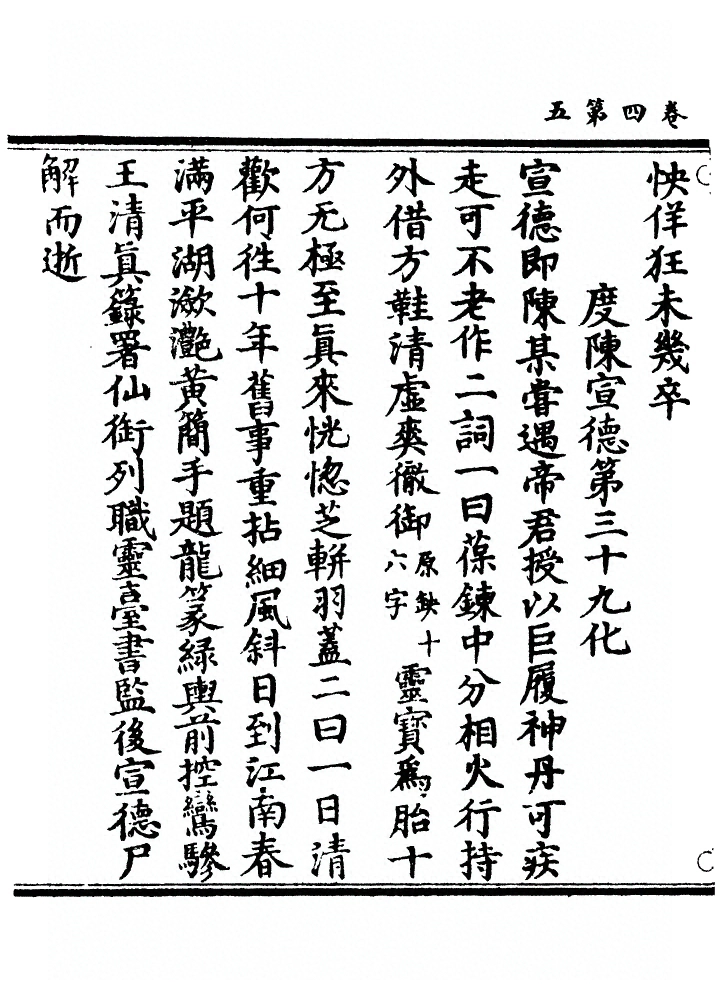 卷四第五
怏佯狂未幾卒
度陳宣德第三十九化
宣德即陳某嘗遇帝君授以巨履神丹可疾
走可不老作二詞一曰葆鍊中分相火行持
外借方鞋清虛爽徹御原缺十六字靈寶爲胎十
方无極至眞來恍惚芝軿羽蓋二曰一日清
歡何徃十年舊事重拈細風斜日到江南春
滿平湖瀲灎黃簡手題龍篆緑輿前控鸞驂
王清眞籙署仙銜列職靈臺書監後宣德尸
解而逝